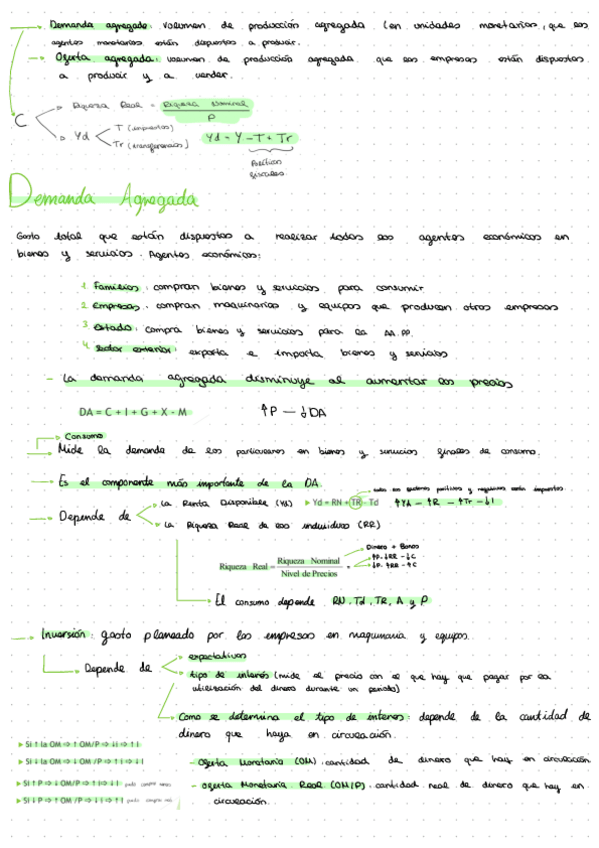 Demanda agregada: volumen de producción agregada (en unidades monetarias, que los
agentes monetarios están dispuestos a producir.
Oferta agregada: volumen de producción agregada que las empresas están dispuestos
a producir y a vender.
C
Riqueza Real = Riqueza Nominal / P
Yd
T (impuestos)
Tr (transferencias)
Yd = Y - T + Tr
Políticas
fiscales
Demanda Agregada
Gasto total que están dispuestos a realizar todos los agentes económicos en
bienes y servicios. Agentes económicos:
1. Familias: compran bienes y servicios para consumir
2. Empresas: compran maquinarias y equipos que producen otras empresas
3. estado: compra bienes y servicios para la AA.PP.
4. Sector exterior: exporta e importa bienes y servicios
- La demanda agregada disminuye al aumentar los precios
DA = C + I + G + X - M
↑P — ↓DA
Consumo
Mide la demanda de los particulares en bienes y servicios finales de consumo.
Es el componente más importante de la DA.
Depende de
La Renta Disponible (Yd)
Yd = RN + TR - Td
↑Yd - ↑R - ↑Tr - ↓I
La Riqueza Real de los individuos (RR)
Riqueza Real = Riqueza Nominal / Nivel de Precios =
Dinero + Bonos
↑P-↓RR-↓C
↓P-↑RR-↑C
El consumo depende RN, Td, TR, A y P
Inversión: gasto planeado por las empresas en maquinaria y equipos.
Depende de
expectativas
tipo de interés (mide el precio con el que hay que pagar por la
utilización del dinero durante un periodo)
Como se determina el tipo de interes: depende de la cantidad de
dinero que haya en circulación.
SI ↑ la OM ⇒ ↑ OM/P ⇒ ↓i ⇒ ↑ I
SI ↓ la OM ⇒ ↓ OM /P ⇒ ↑ i ⇒ ↓ I
SI ↑ P ⇒ ↓ OM/P ⇒ ↑ i ⇒ ↓ I puedo comprar menos
SI ↓ P ⇒ ↑ OM /P ⇒ ↓ i ⇒ ↑ I puedo comprar más
- Oferta Monetaria (OM): cantidad de dinero que hay en circulación
- oferta Monetaria Real (OM/P): cantidad real de dinero que hay en
circulación.